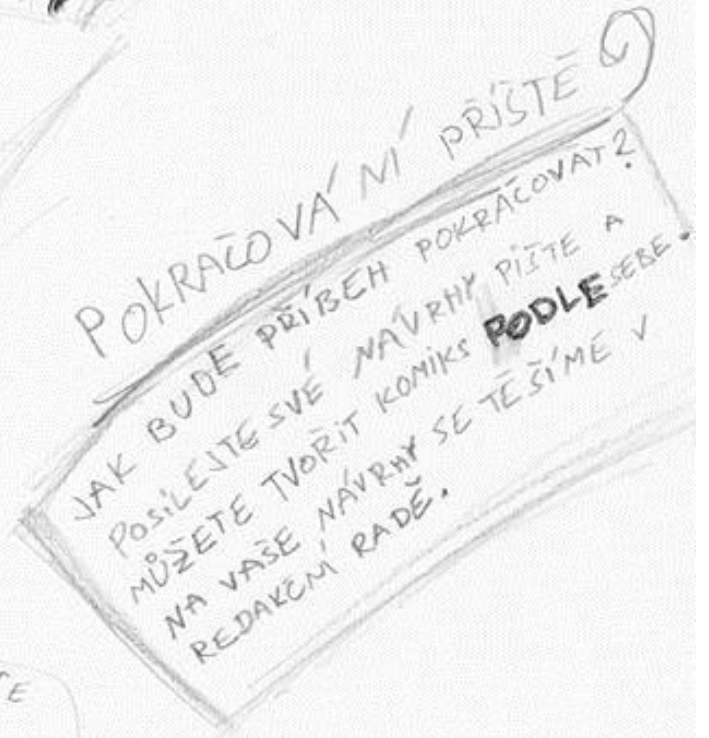 POKRAČOVÁNÍ PŘÍŠTĚ
JAK BUDE PŘÍBĚH POKRAČOVAT?
POSÍLEJTE SVÉ NÁVRHY PIŠTE A
MŮŽETE TVOŘIT KOMIKS PODLE SEBE.
NA VAŠE NÁVRHY SE TĚŠÍME V
REDAKČNÍ RADĚ.